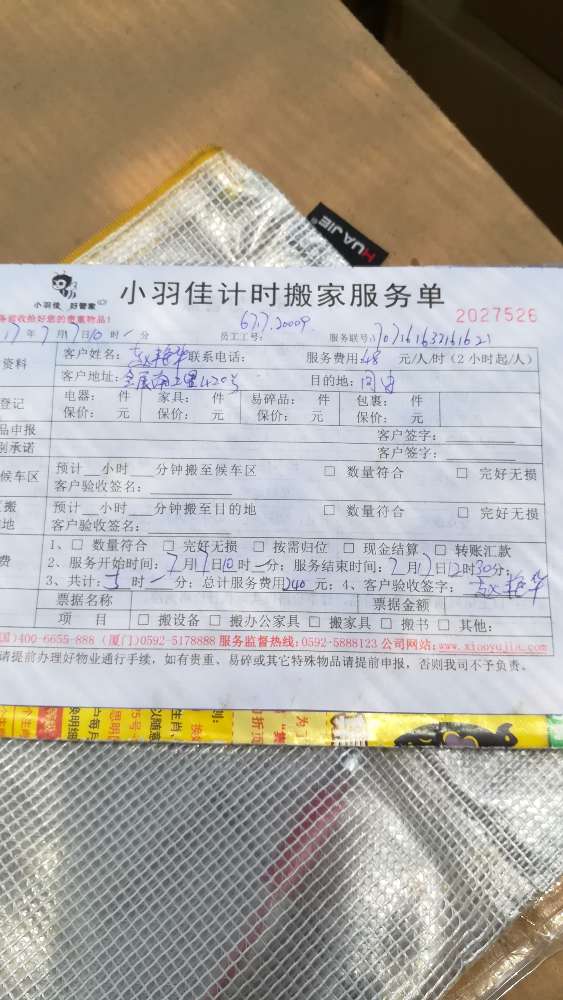 HUAJIE
小羽佳 好管家
小羽佳计时搬家服务单
务必验收拾好您的贵重物品!
2027526
17年7月17日10时一分 员工工号: 6717.20009 服务联号:
资料 客户姓名: 联系电话: 服务费用48元/人/时(2小时起/人)
客户地址: 目的地:
登记 电器: 件 家具: 件 易碎品: 件 包裹: 件
保价: 元 保价: 元 保价: 元 保价: 元
品申报 客户签字:
别承诺 客户签字:
候车区 预计__小时__分钟搬至候车区 □ 数量符合 □ 完好无损
客户验收签名:
搬 预计__小时__分钟搬至目的地 □ 数量符合 □ 完好无损
地 客户验收签名:
1、□ 数量符合 □ 完好无损 □ 按需归位 □ 现金结算 □ 转账汇款
费 2、服务开始时间:7月17日10时一分;服务结束时间:7月17日12时30分;
3、共计:5时一分;总计服务费用240元;4、客户验收签字:
票据名称 票据金额
项 目 □ 搬设备 □ 搬办公家具 □ 搬家具 □ 搬书 □ 其他:
国)400-6655-888 (厦门)0592-5178888 服务监督热线:0592-5888123 公司网站:www.xiaoyujia.com
请提前办理好物业通行手续,如有贵重、易碎或其它特殊物品请提前申报,否则我司不予负责。